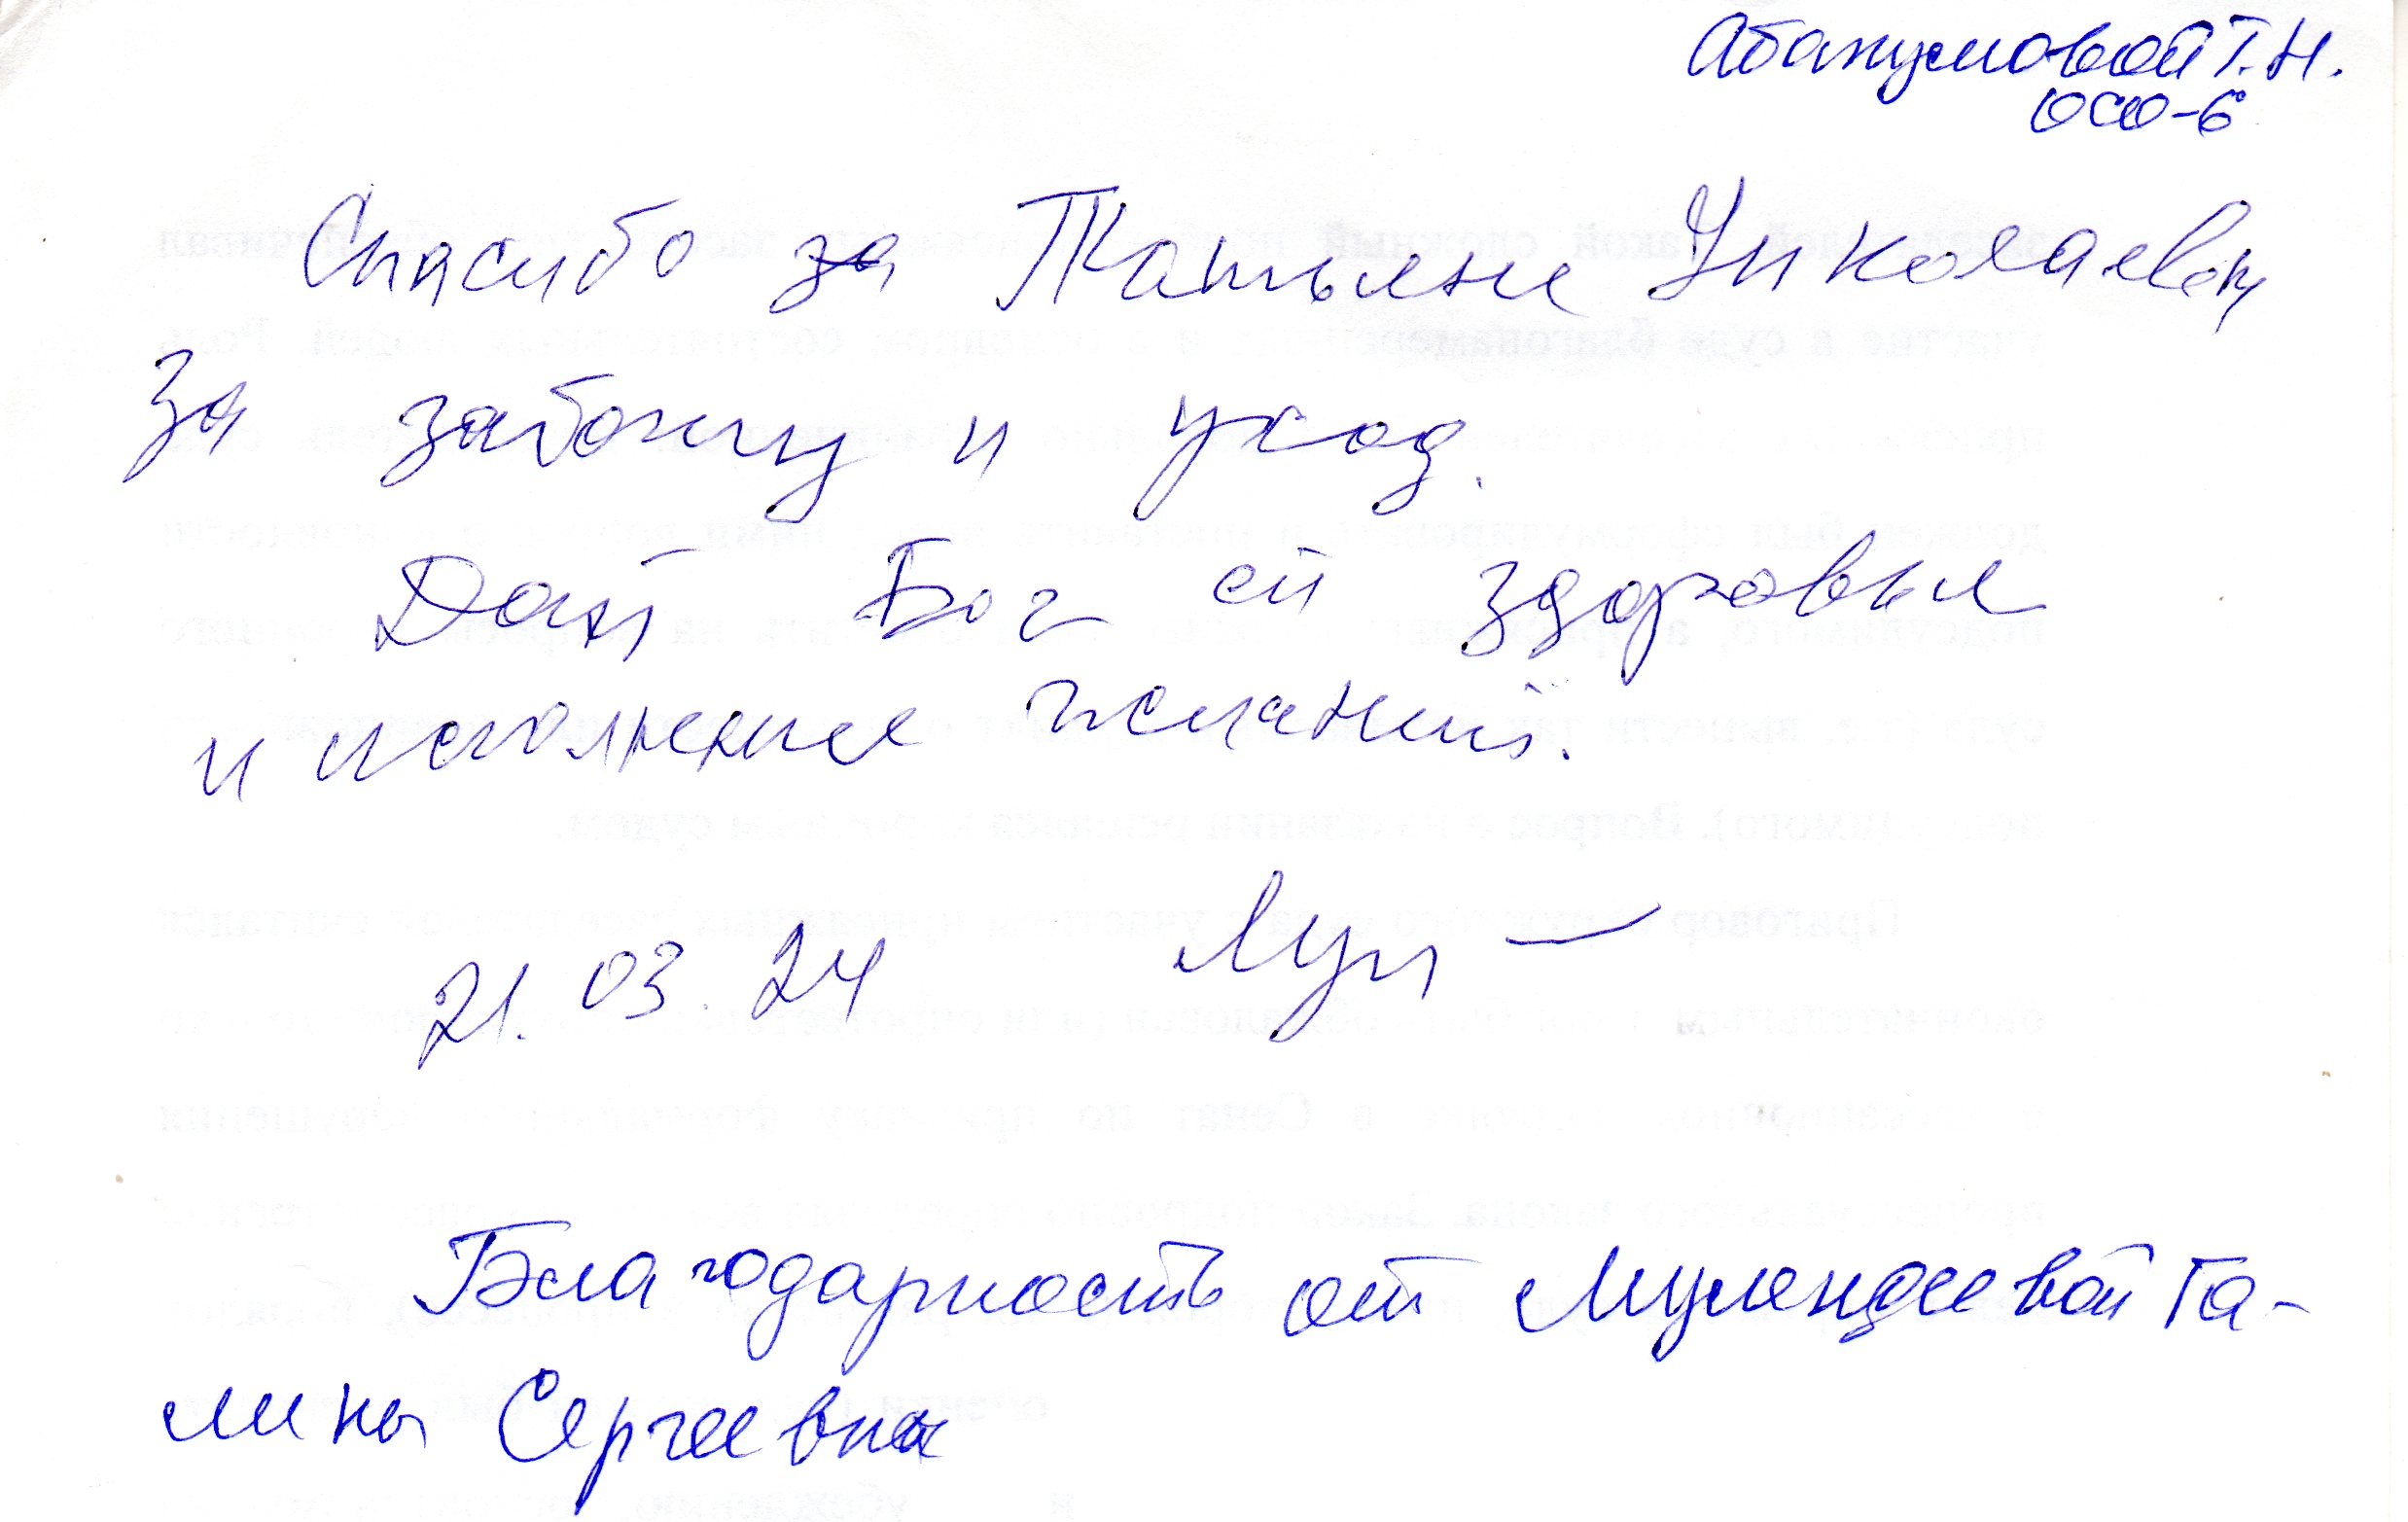 Абакумовой Т.Н.
ОСО-6
Спасибо за Татьяне Николаевн
за заботу и уход.
Дай Бог ей здоровья
и исполнение желаний.
21.03.24
Благодарность от Га-
лины Сергеевны